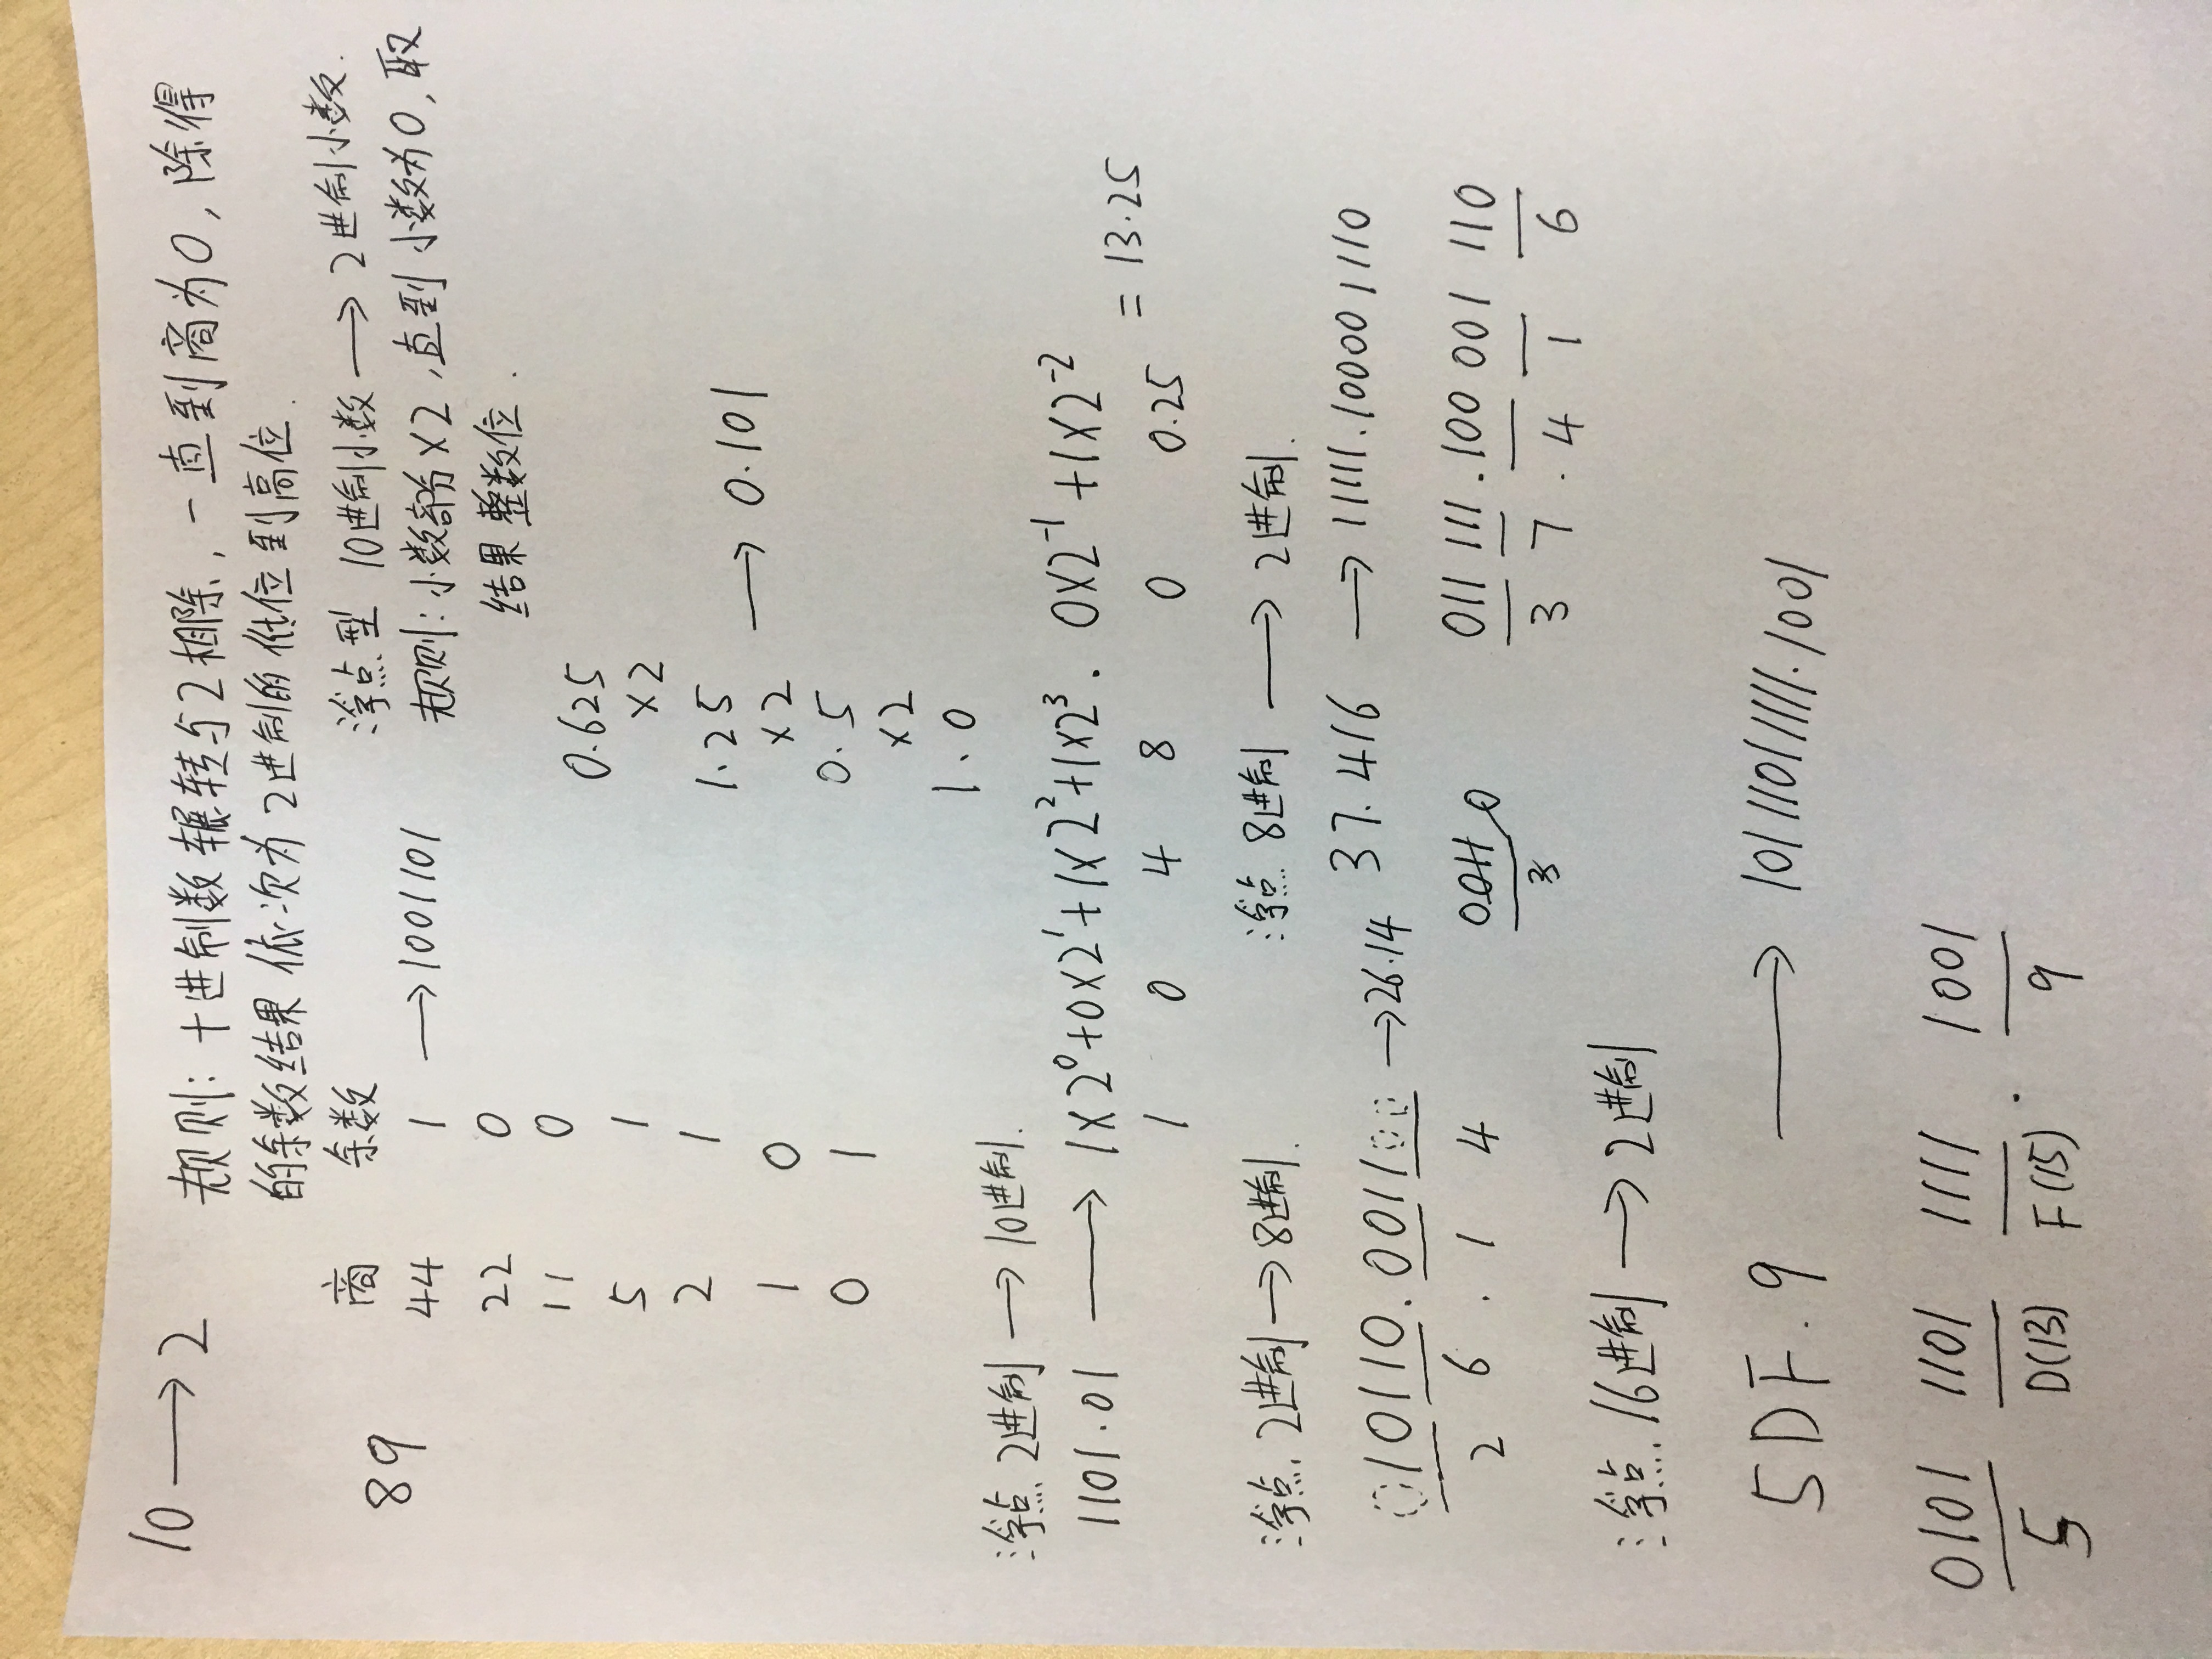 10 → 2
规则: 十进制数 辗转与2相除, 一直到商为0, 除得
的余数结果 依次为 2进制的 低位到高位.
89
商 余数
44 1 → 1001101
22 0
11 0
5 1
2 1
1 0
0 1
浮点型 10进制小数 → 2进制小数.
规则: 小数部分×2, 直到 小数为0, 取
结果 整数位.
0.625
×2
1.25
×2
0.5
×2
1.0
→ 0.101
浮点 2进制 → 10进制.
1101.01 → 1×2⁰+0×2¹+1×2²+1×2³. 0×2⁻¹ +1×2⁻²
1 0 4 8 0 0.25 = 13.25
浮点. 2进制 → 8进制.
010110.001100 → 26.14
2 6 . 1 4
浮点 8进制 → 2进制.
37.416 → 11111.100001110
0011 0
3
011 111 .100 001 110
3 7 . 4 1 6
浮点. 16进制 → 2进制
5DF.9 → 10111011111.1001
0101 1101 1111 . 1001
5 D(13) F(15) 9